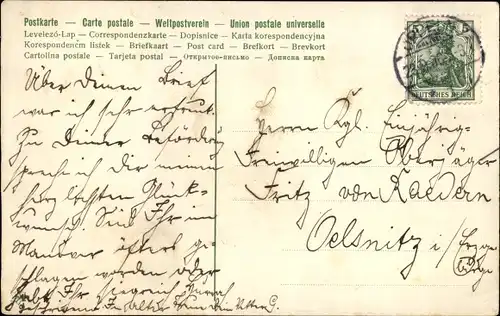 Postkarte — Carte postale — Weltpostverein — Union postale universelle
Levelező-Lap — Correspondenzkarte — Dopisnice — Karta korespondencyjna
Korespondenční lístek — Briefkaart — Post card — Brefkort — Brevkort
Cartolina postale — Tarjeta postal — Открытое письмо — Дописна карта
DEUTSCHES REICH
Über Deinen Brief
war ich sehr erfreut.
Zu Deiner Beförderung
spreche ich Dir meinen
herzlichsten Glück-
wunsch. Seid Ihr im
Manöver öfters ge-
schlagen worden oder
habt Ihr siegreich
Herrn Kgl. Einjährig-
Freiwilligen Oberjäger
Fritz von Raedern
Oelsnitz i/Erzge-
birge